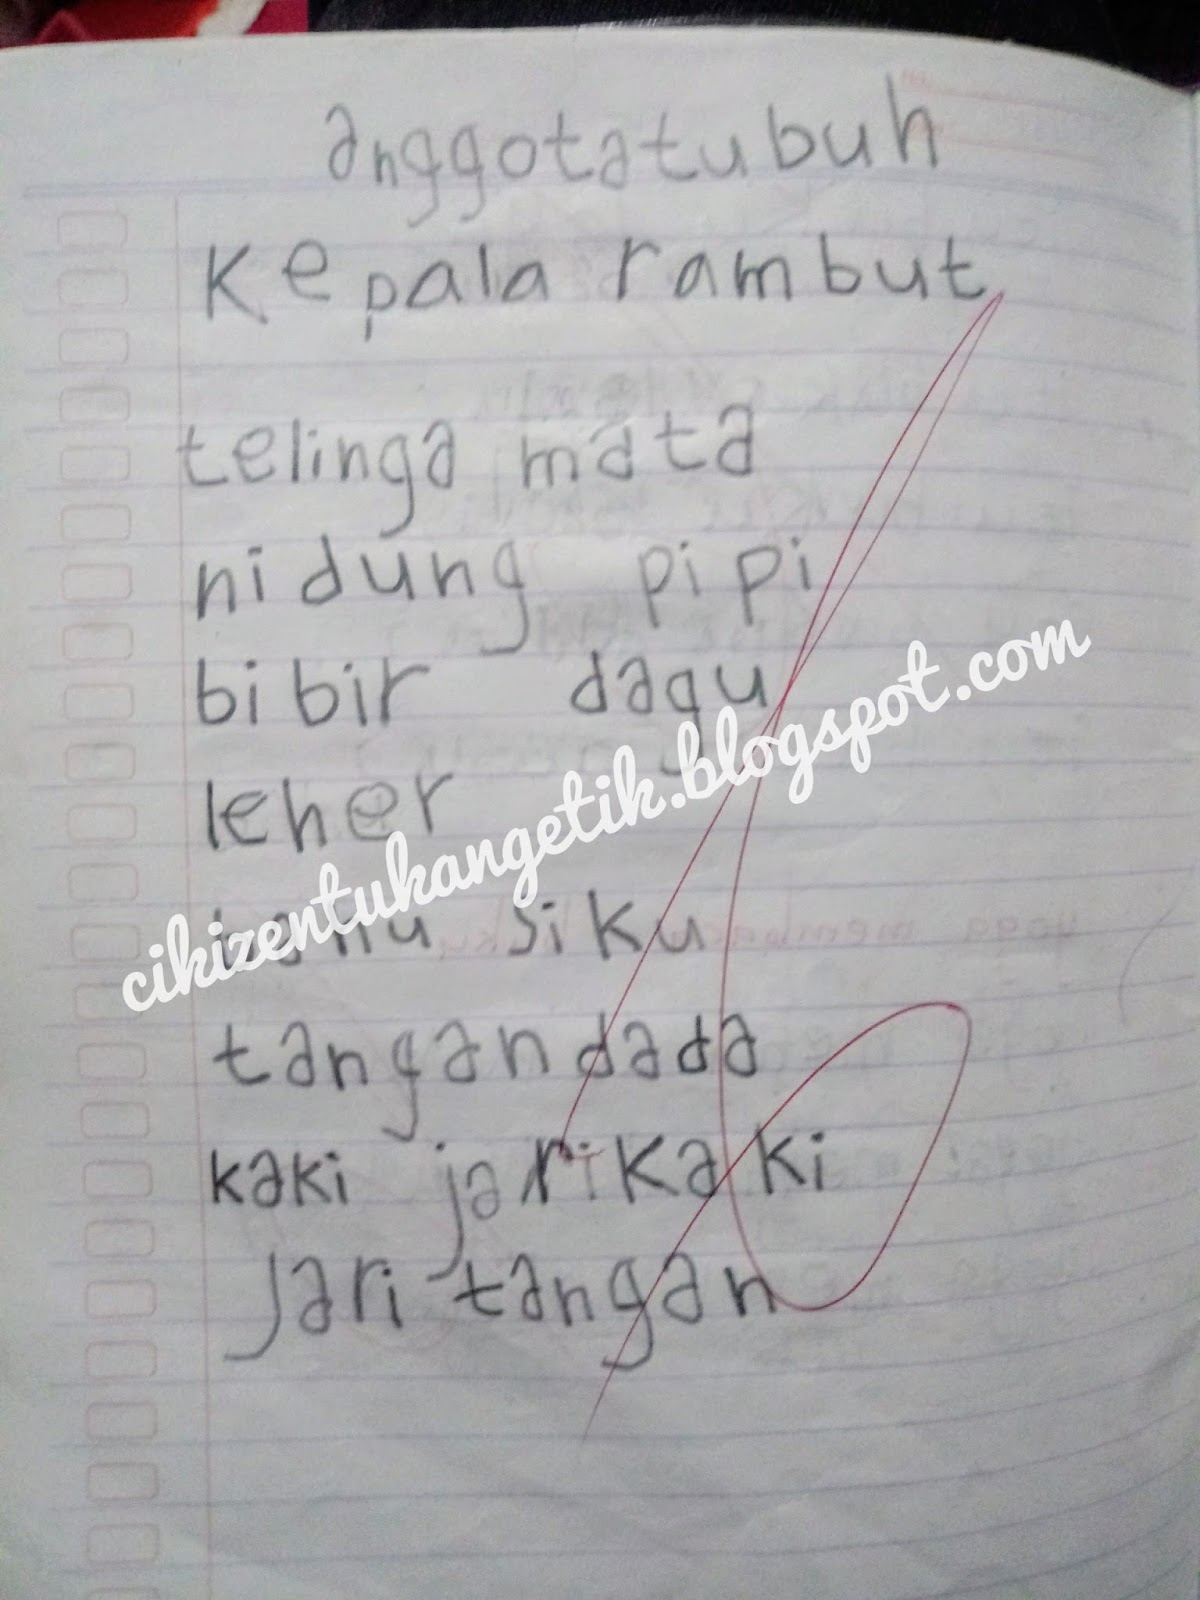 anggotatubuh
Kepala rambut
telinga mata
hidung pipi
bibir dagu
leher
siku
tangan dada
kaki jari kaki
Jari tangan
cikizentukangetik.blogspot.com